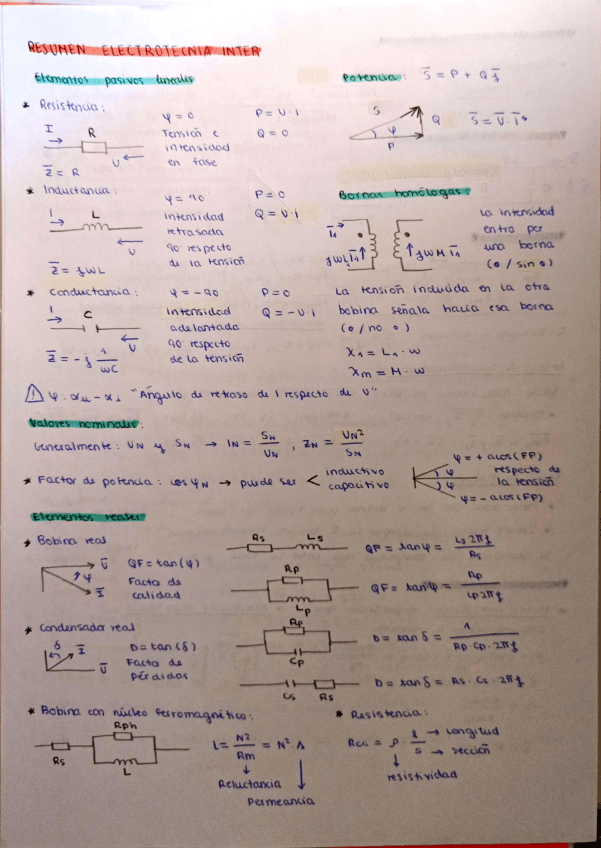 RESUMEN ELECTROTECNIA INTER
Elementos pasivos lineales
* Resistencia:
I R U
Z̅ = R
φ = 0
Tensión e
intensidad
en fase
P = U·i
Q = 0
* Inductancia:
I L U
Z̅ = jωL
φ = 90
intensidad
retrasada
90 respecto
de la tensión
P = 0
Q = U·i
* Conductancia:
I C U
Z̅ = -j 1/ωC
φ = -90
Intensidad
adelantada
90 respecto
de la tensión
P = 0
Q = -U·i
Potencia: S̅ = P + Qj
S φ P Q
S̅ = U̅·I̅*
Bornas homólogas:
I̅₁ jωL₁I̅₁ jωM I̅₁
La intensidad
entra por
una borna
(o / sin o)
La tensión inducida en la otra
bobina señala hacia esa borna
(o / no o)
X₁ = L₁·ω
Xm = M·ω
⚠ φ: αu - αi "Ángulo de retraso de I respecto de U"
Valores nominales:
Generalmente: UN y SN → IN = SN/UN, ZN = UN²/SN
* Factor de potencia: cos φN → puede ser < inductivo
capacitivo
φ = + acos(FP)
respecto de
la tensión
φ = - acos(FP)
φ
φ
Elementos reales:
* Bobina real
U̅ φ I̅
QF = tan(φ)
Factor de
calidad
Rs Ls QF = tanφ = Ls 2πf / Rs
Rp Lp QF = tanφ = Rp / Lp 2πf
* Condensador real
δ I̅ U̅
D = tan(δ)
Factor de
pérdidas
Rp Cp D = tan δ = 1 / Rp·Cp·2πf
Cs Rs D = tan δ = Rs·Cs·2πf
* Bobina con núcleo ferromagnético:
Rs Rph L
L = N²/Rm = N²·Λ
Reluctancia
Permeancia
* Resistencia:
Rcc = ρ · l/s → Longitud
→ sección
resistividad